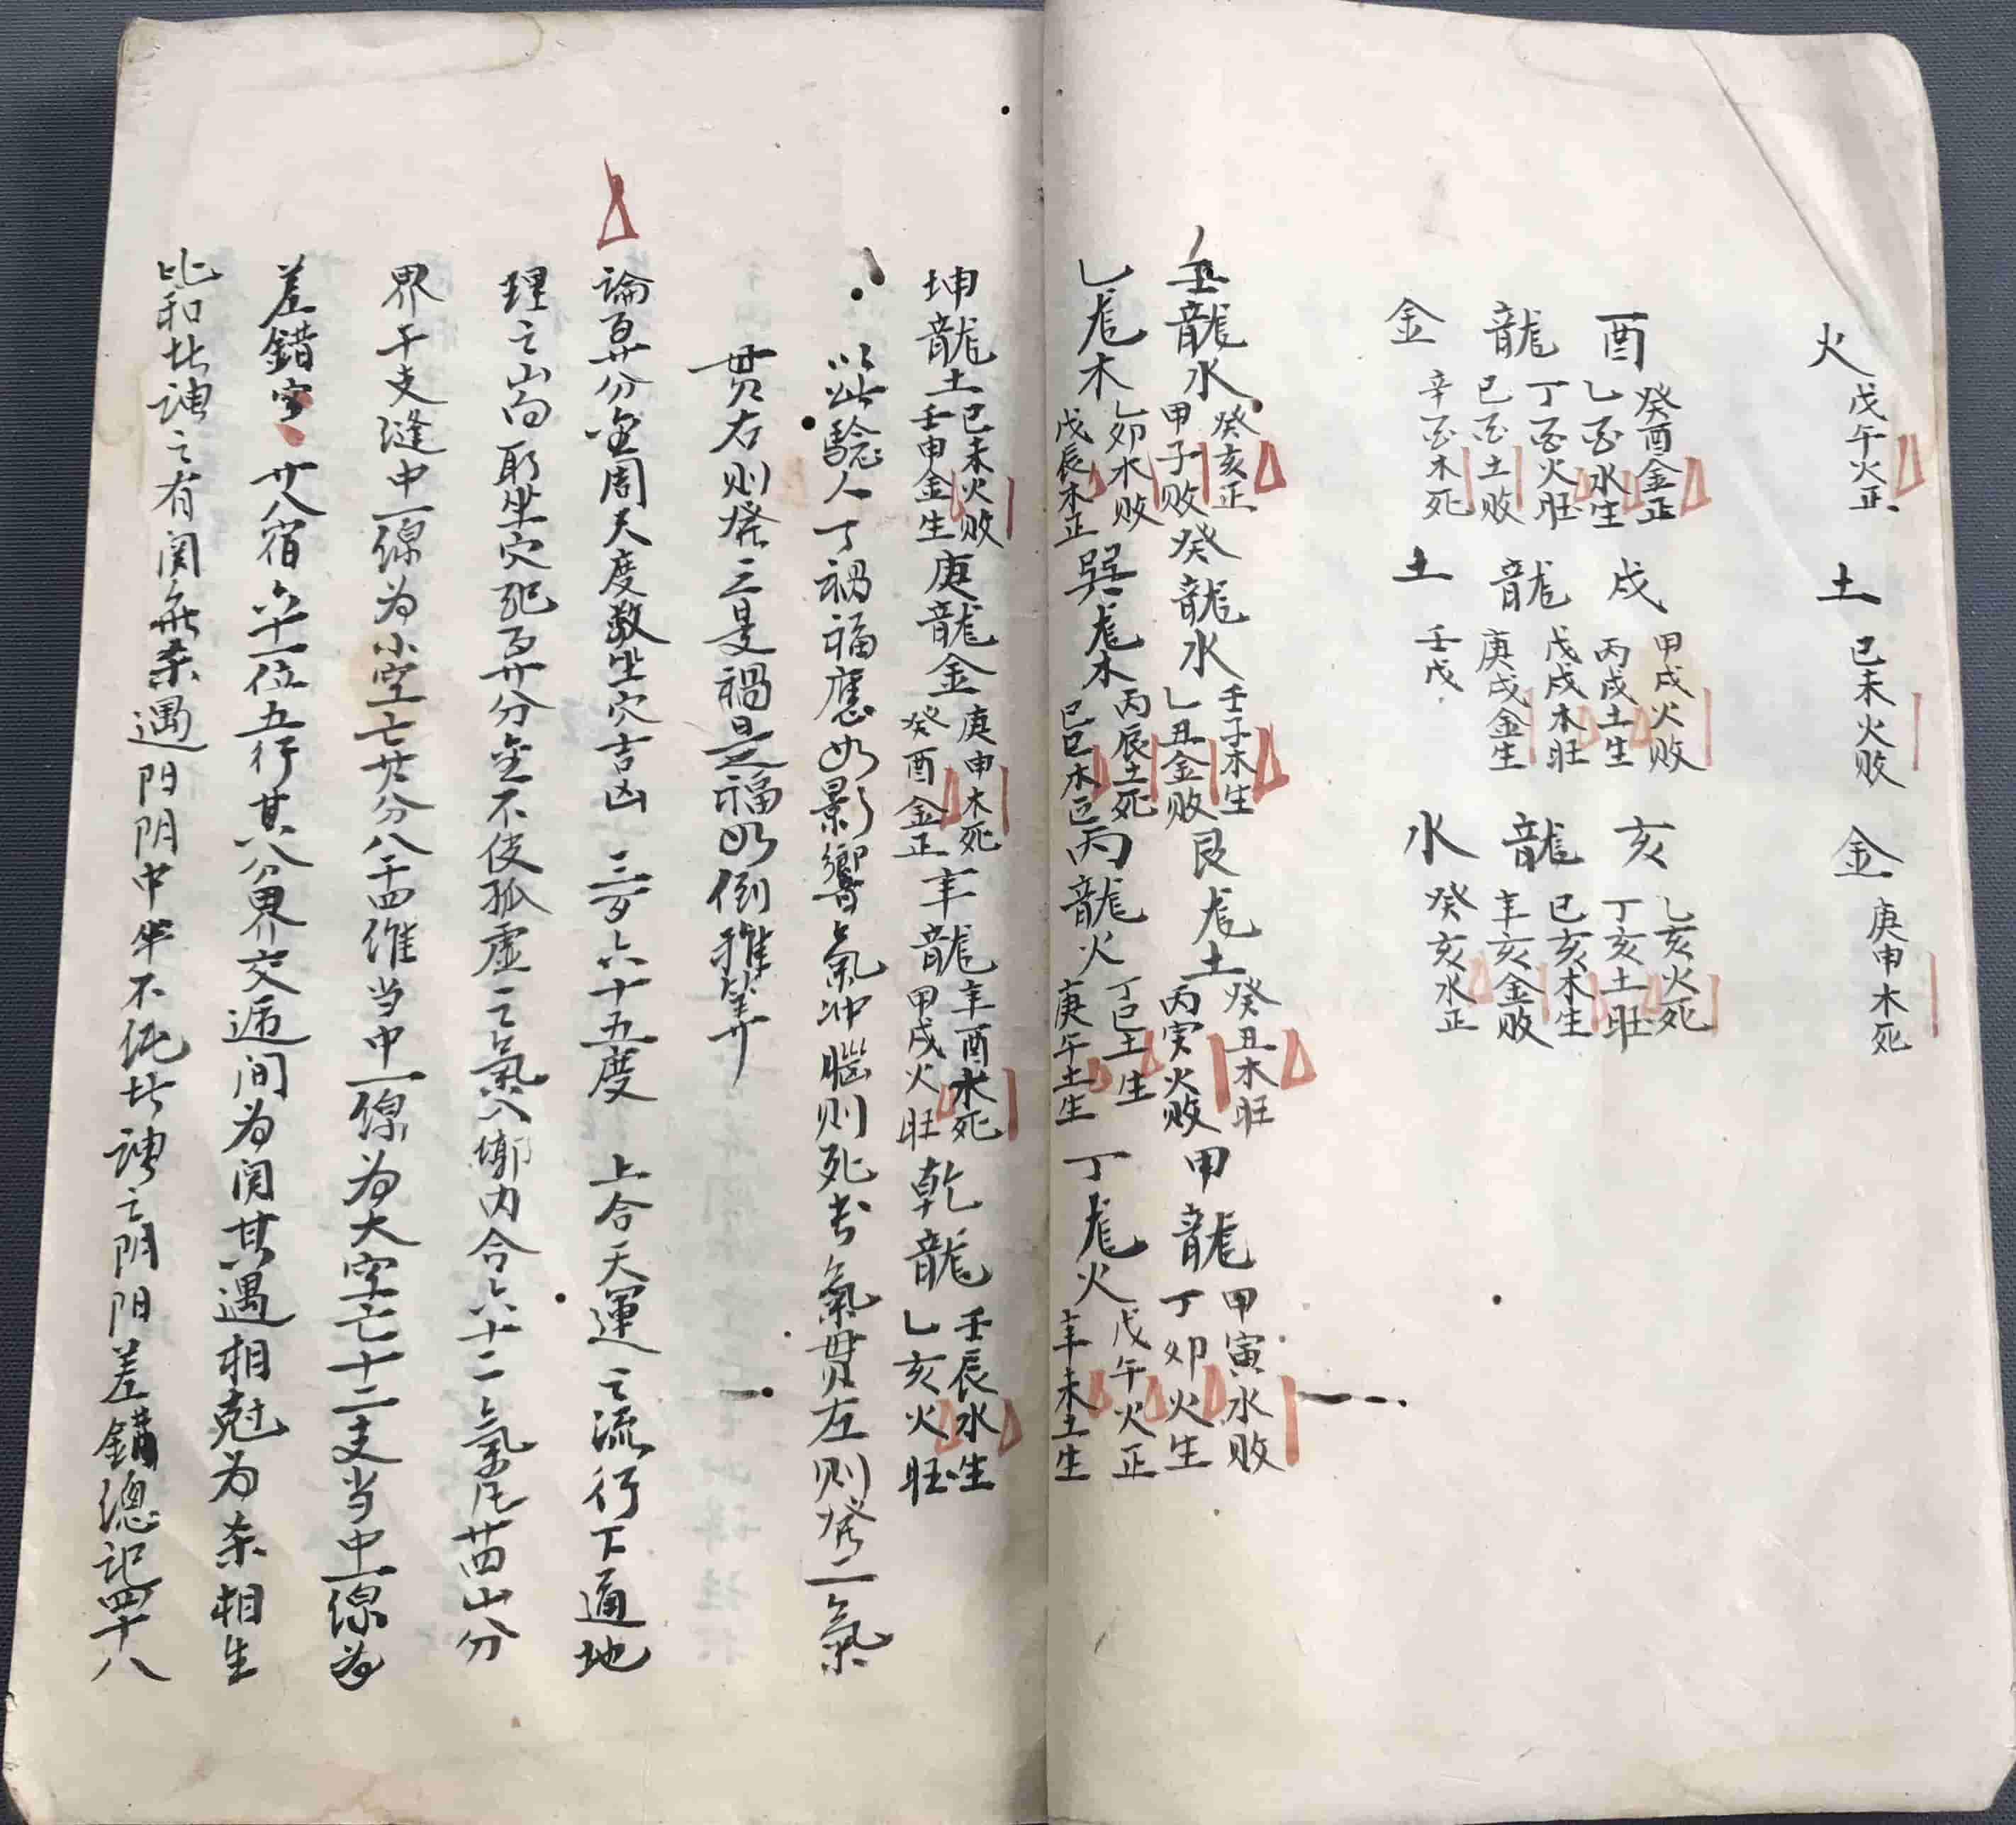 火 戊午火正 土 己未火败 金 庚申木死
酉龍金 癸酉金正 乙酉水生 丁酉火旺 己酉土败 辛酉木死
戌龍土 甲戌火败 丙戌土生 戊戌木旺 庚戌金生 壬戌
亥龍水 乙亥火死 丁亥土旺 己亥木生 辛亥金败 癸亥水正
壬龍水 癸亥正 甲子败 癸龍水 壬子木生 乙丑金败 艮龙土 癸丑木旺 丙寅火败 甲龍 甲寅水败 丁卯火生
乙龙木 乙卯水败 戊辰木正 巽龙木 丙辰土死 己巳木正 丙龍火 丁巳土生 庚午土生 丁龙火 戊午火正 辛未土生
坤龍土 己未火败 壬申金生 庚龍金 庚申木死 癸酉金正 辛龍 辛酉水死 甲戌火旺 乾龍 壬辰水生 乙亥火旺
以此驗人丁禍福應如影響氣冲腦则死者氣贯左则發二氣
贯右则發三是禍是福如倒推算
論百廿分金周天度数坐穴吉凶 三百六十五度 上合天運之流行下通地
理之山向耶坐穴犯百廿分金不使孤虚之氣入墎内合六十二氣凡廿四山分
界干支縫中一線为小空亡廿分八干四維当中一線为大空亡十二支当中一線为
差錯空 廿八宿六十一位五行其八分界交逓间为関其遇相尅为杀相生
比和者謂之有関無杀遇阳阴中半不純者謂之阴阳差錯總记四十八